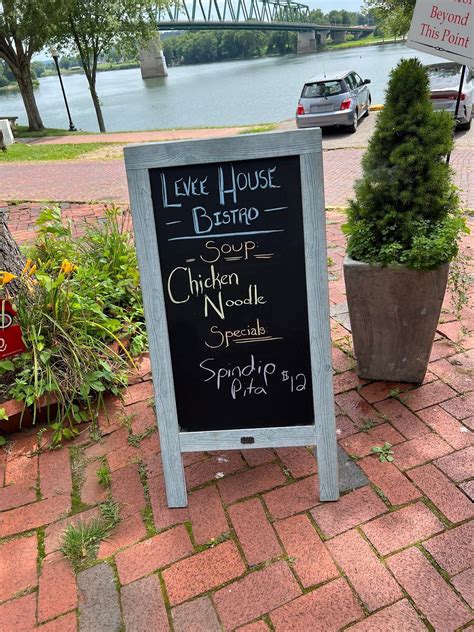 Beyond
This Point
LEVEE HOUSE
- BISTRO -
Soup:
Chicken
Noodle
Specials:
Spindip $12
Pita